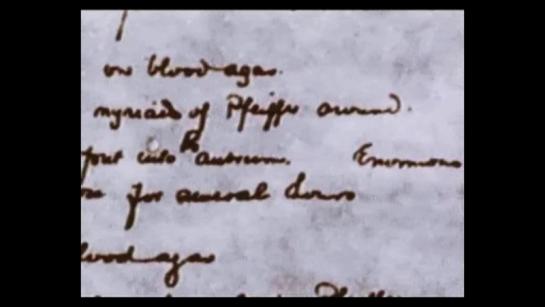 on blood agar.
myriads of Pfeiffer around.
put into antrum. Enormous
for several hours
blood agar